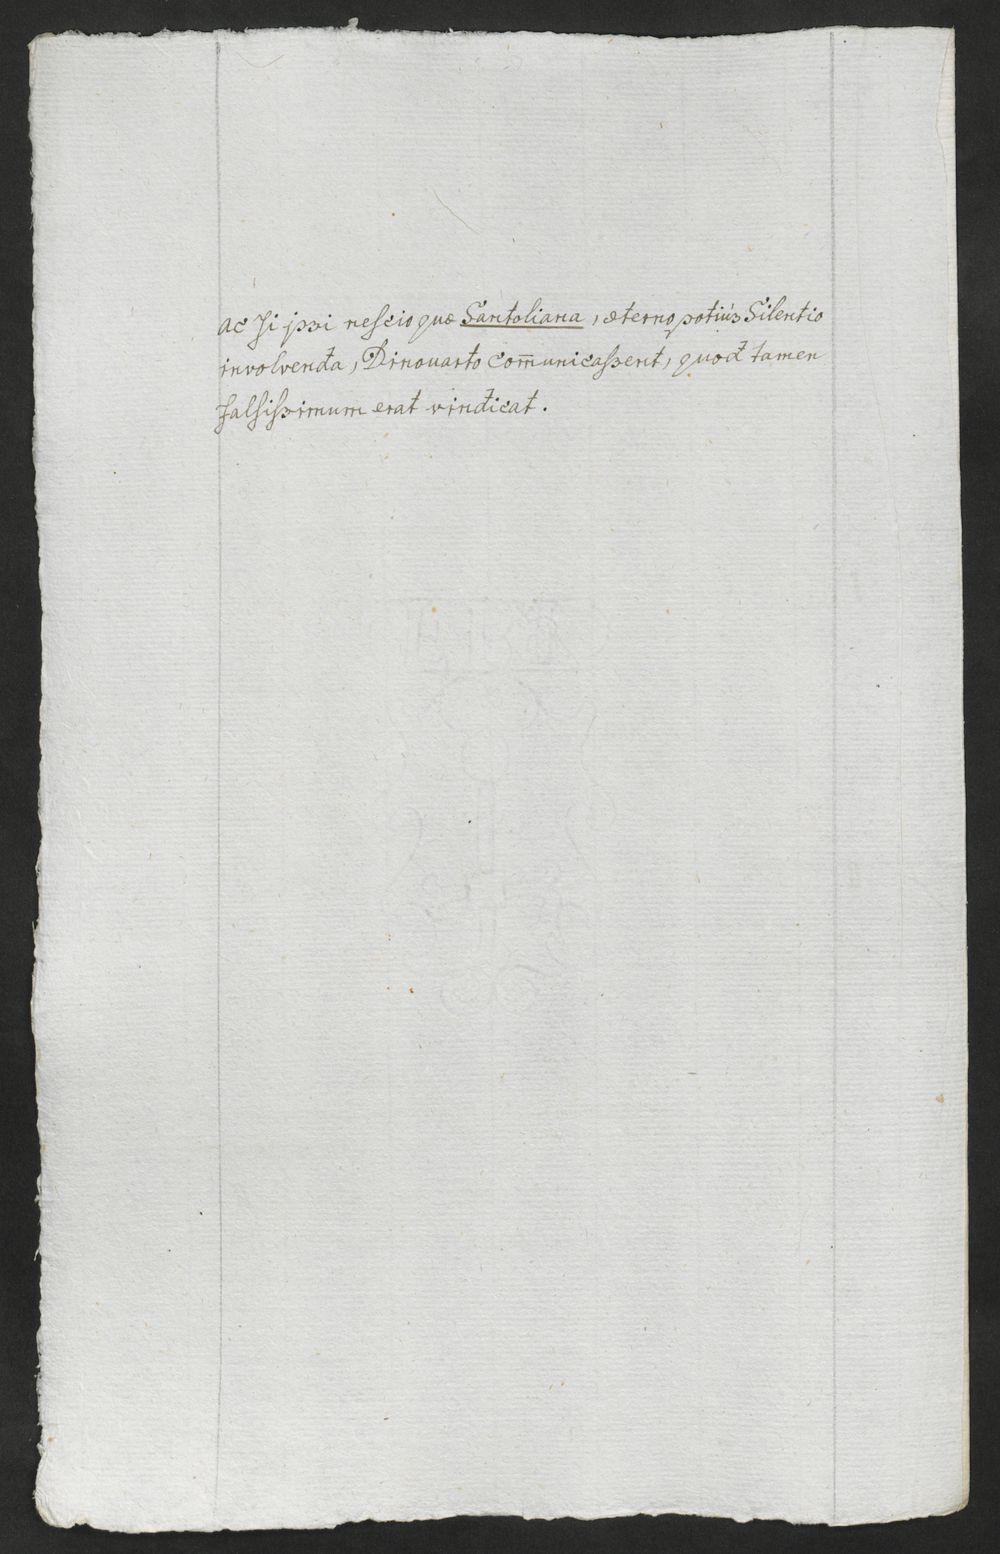 ac si ipsi nescio quæ Santoliana, æterno potiùs Silentio
involvenda, Dinouarto com̄unicassent, quod tamen
falsissimum erat vindicat.